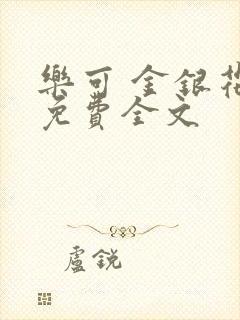 樂可 金銀花
免費全文
盧銳